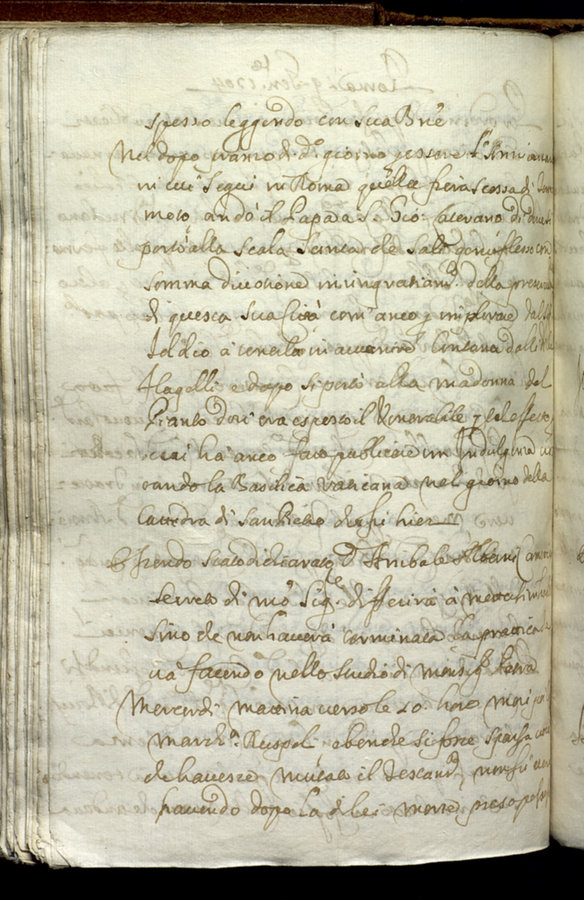 spesso leggendo con sua Bne
Nel dopo pranzo di do giorno per essere l'Anniversa
in cui seguì in Roma quella fiera scossa di Ter
moto andò il Papa a S. Gio: Laterano di dove si
portò alla Scala Santa che salì genuflesso con
somma divotione in ringratiamto della preserva
di questa sua Città com'anco p implorare dal Sig
Iddio a tenerla in avvenire lontana dalli
flagelli e dopo si portò alla Madonna del
Pianto dov'era esposto il Venerabile p tal effetto
ha anco fatto publicare un Indulgenza
la Basilica Vaticana nel giorno della
Cattedra di San Pietro che fu hier
Essendo stato dichiarato D. Anibale Albani
Segreto di Sig. differirà a mettersi
sino che non haverà terminata la prattica
va facendo nello studio di Monsig.
Mercordì mattina verso le 20 hore morì
March.a Ruspoli e benche si fosse sparsa voce
che havesse mutato il Testamto non fù vero
havendo dopo la di lei morte preso